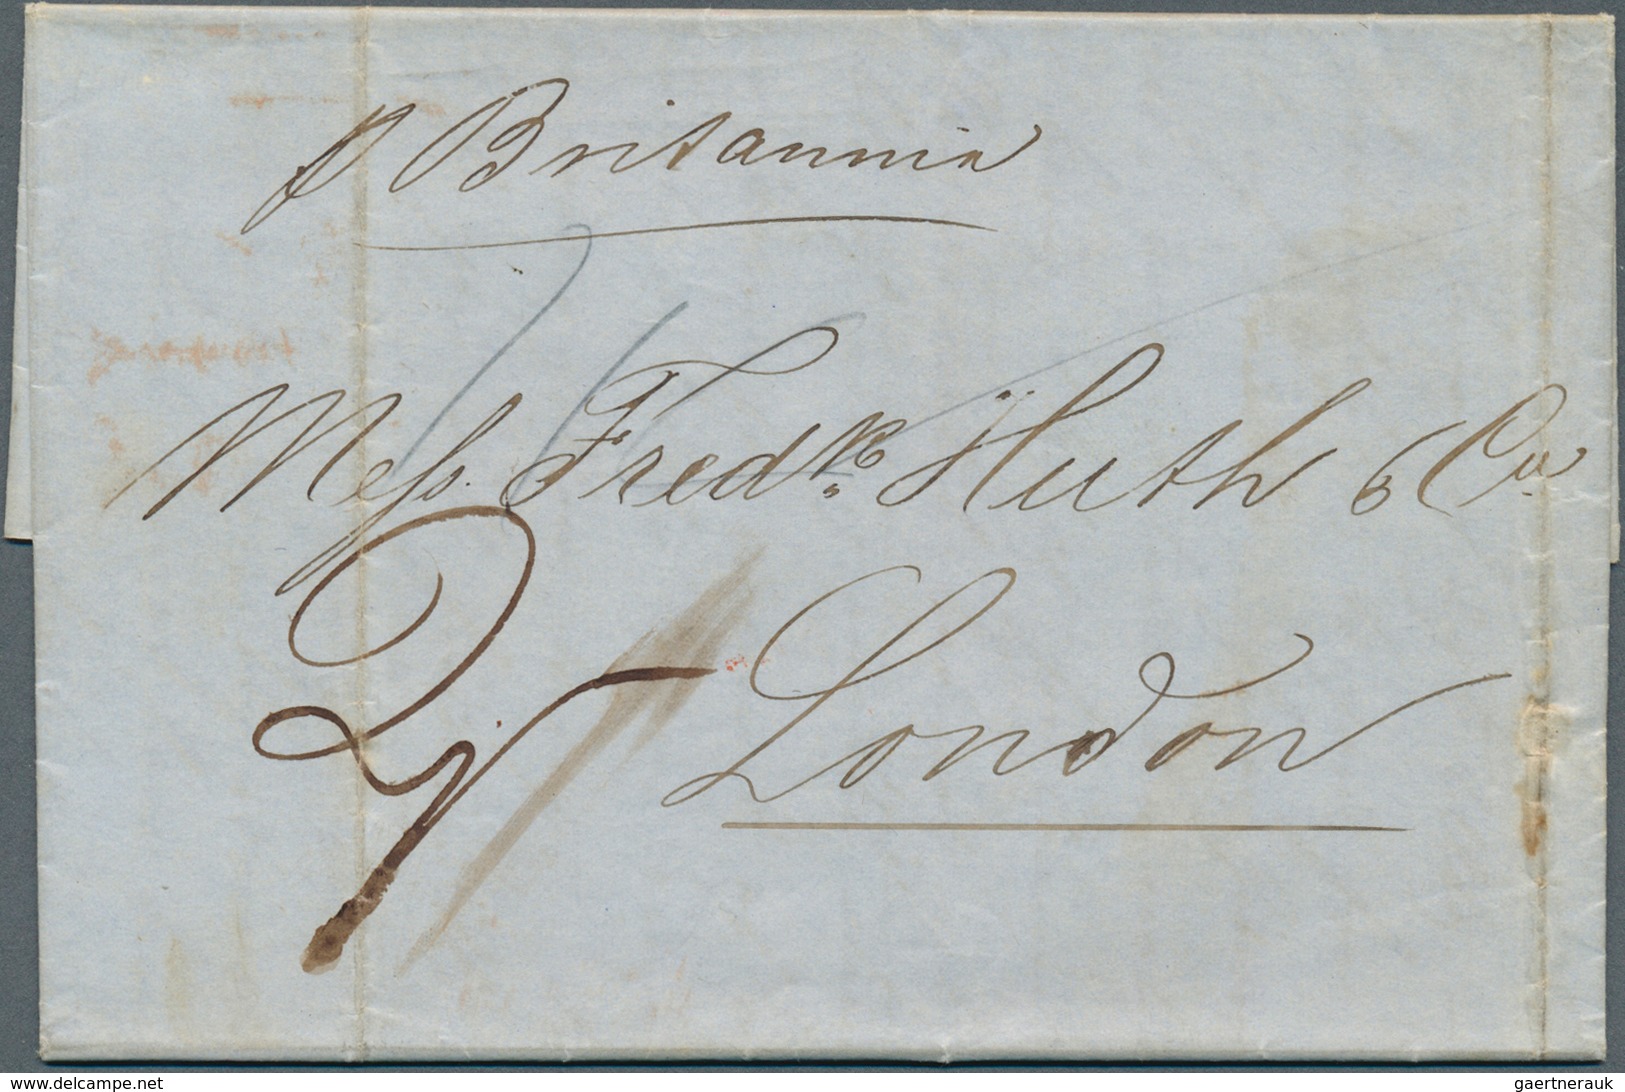 p Britannia
Mess. Fredk. Huth & Co
2/
London
www.delcampe.net
gaertnerauk